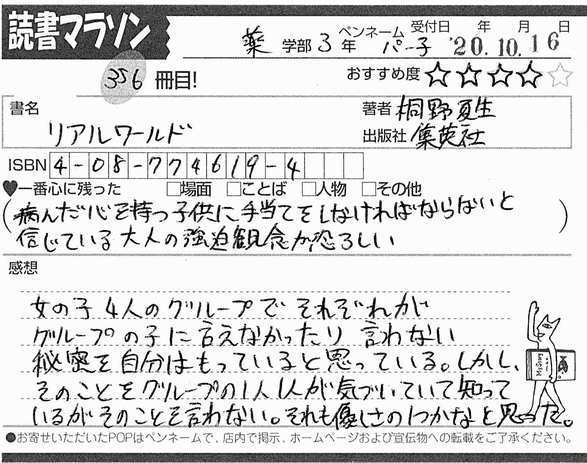 読書マラソン
薬 学部 3 年 ペンネーム パー子 受付日 年 月 日 '20.10.16
356 冊目! おすすめ度 ☆☆☆☆☆
書名 リアルワールド
著者 桐野夏生
出版社 集英社
ISBN 4-08-774619-4
♥一番心に残った □場面 □ことば □人物 □その他
(病んだ心を持つ子供に手当てをしなければならないと
信じている大人の強迫観念が恐ろしい)
感想
女の子4人のグループで それぞれが
グループの子に言えなかったり 言わない
秘密を自分はもっていると思っている。しかし、
そのことをグループの1人1人が気づいていて知って
いるがそのことを言わない。それも優しさの1つかなと思った。
●お寄せいただいたPOPはペンネームで、店内で掲示、ホームページおよび宣伝物への転載をご了承ください。